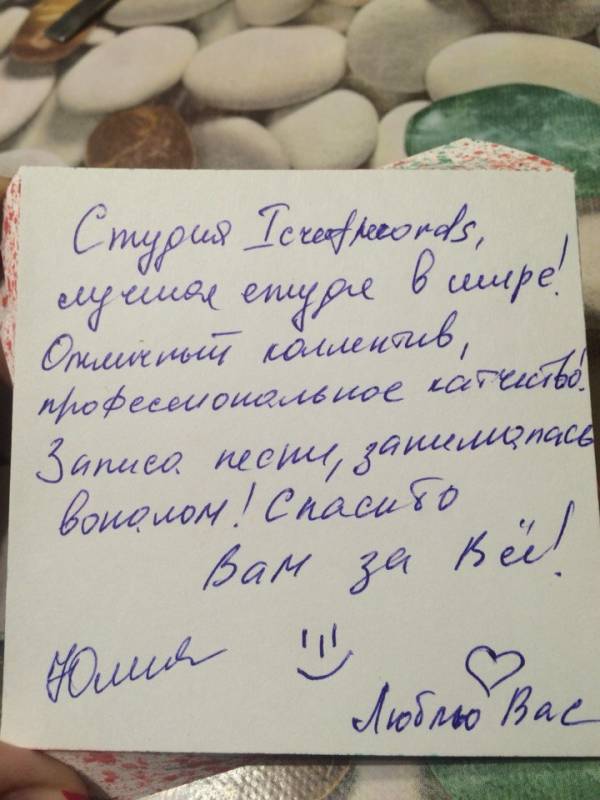 Студия Icreatrecords,
лучшая студия в мире!
Отличный коллектив,
профессиональное катчество!
Записа песни, занималась
вокалом! Спасибо
Вам за Всё!
Юлия
Люблю Вас